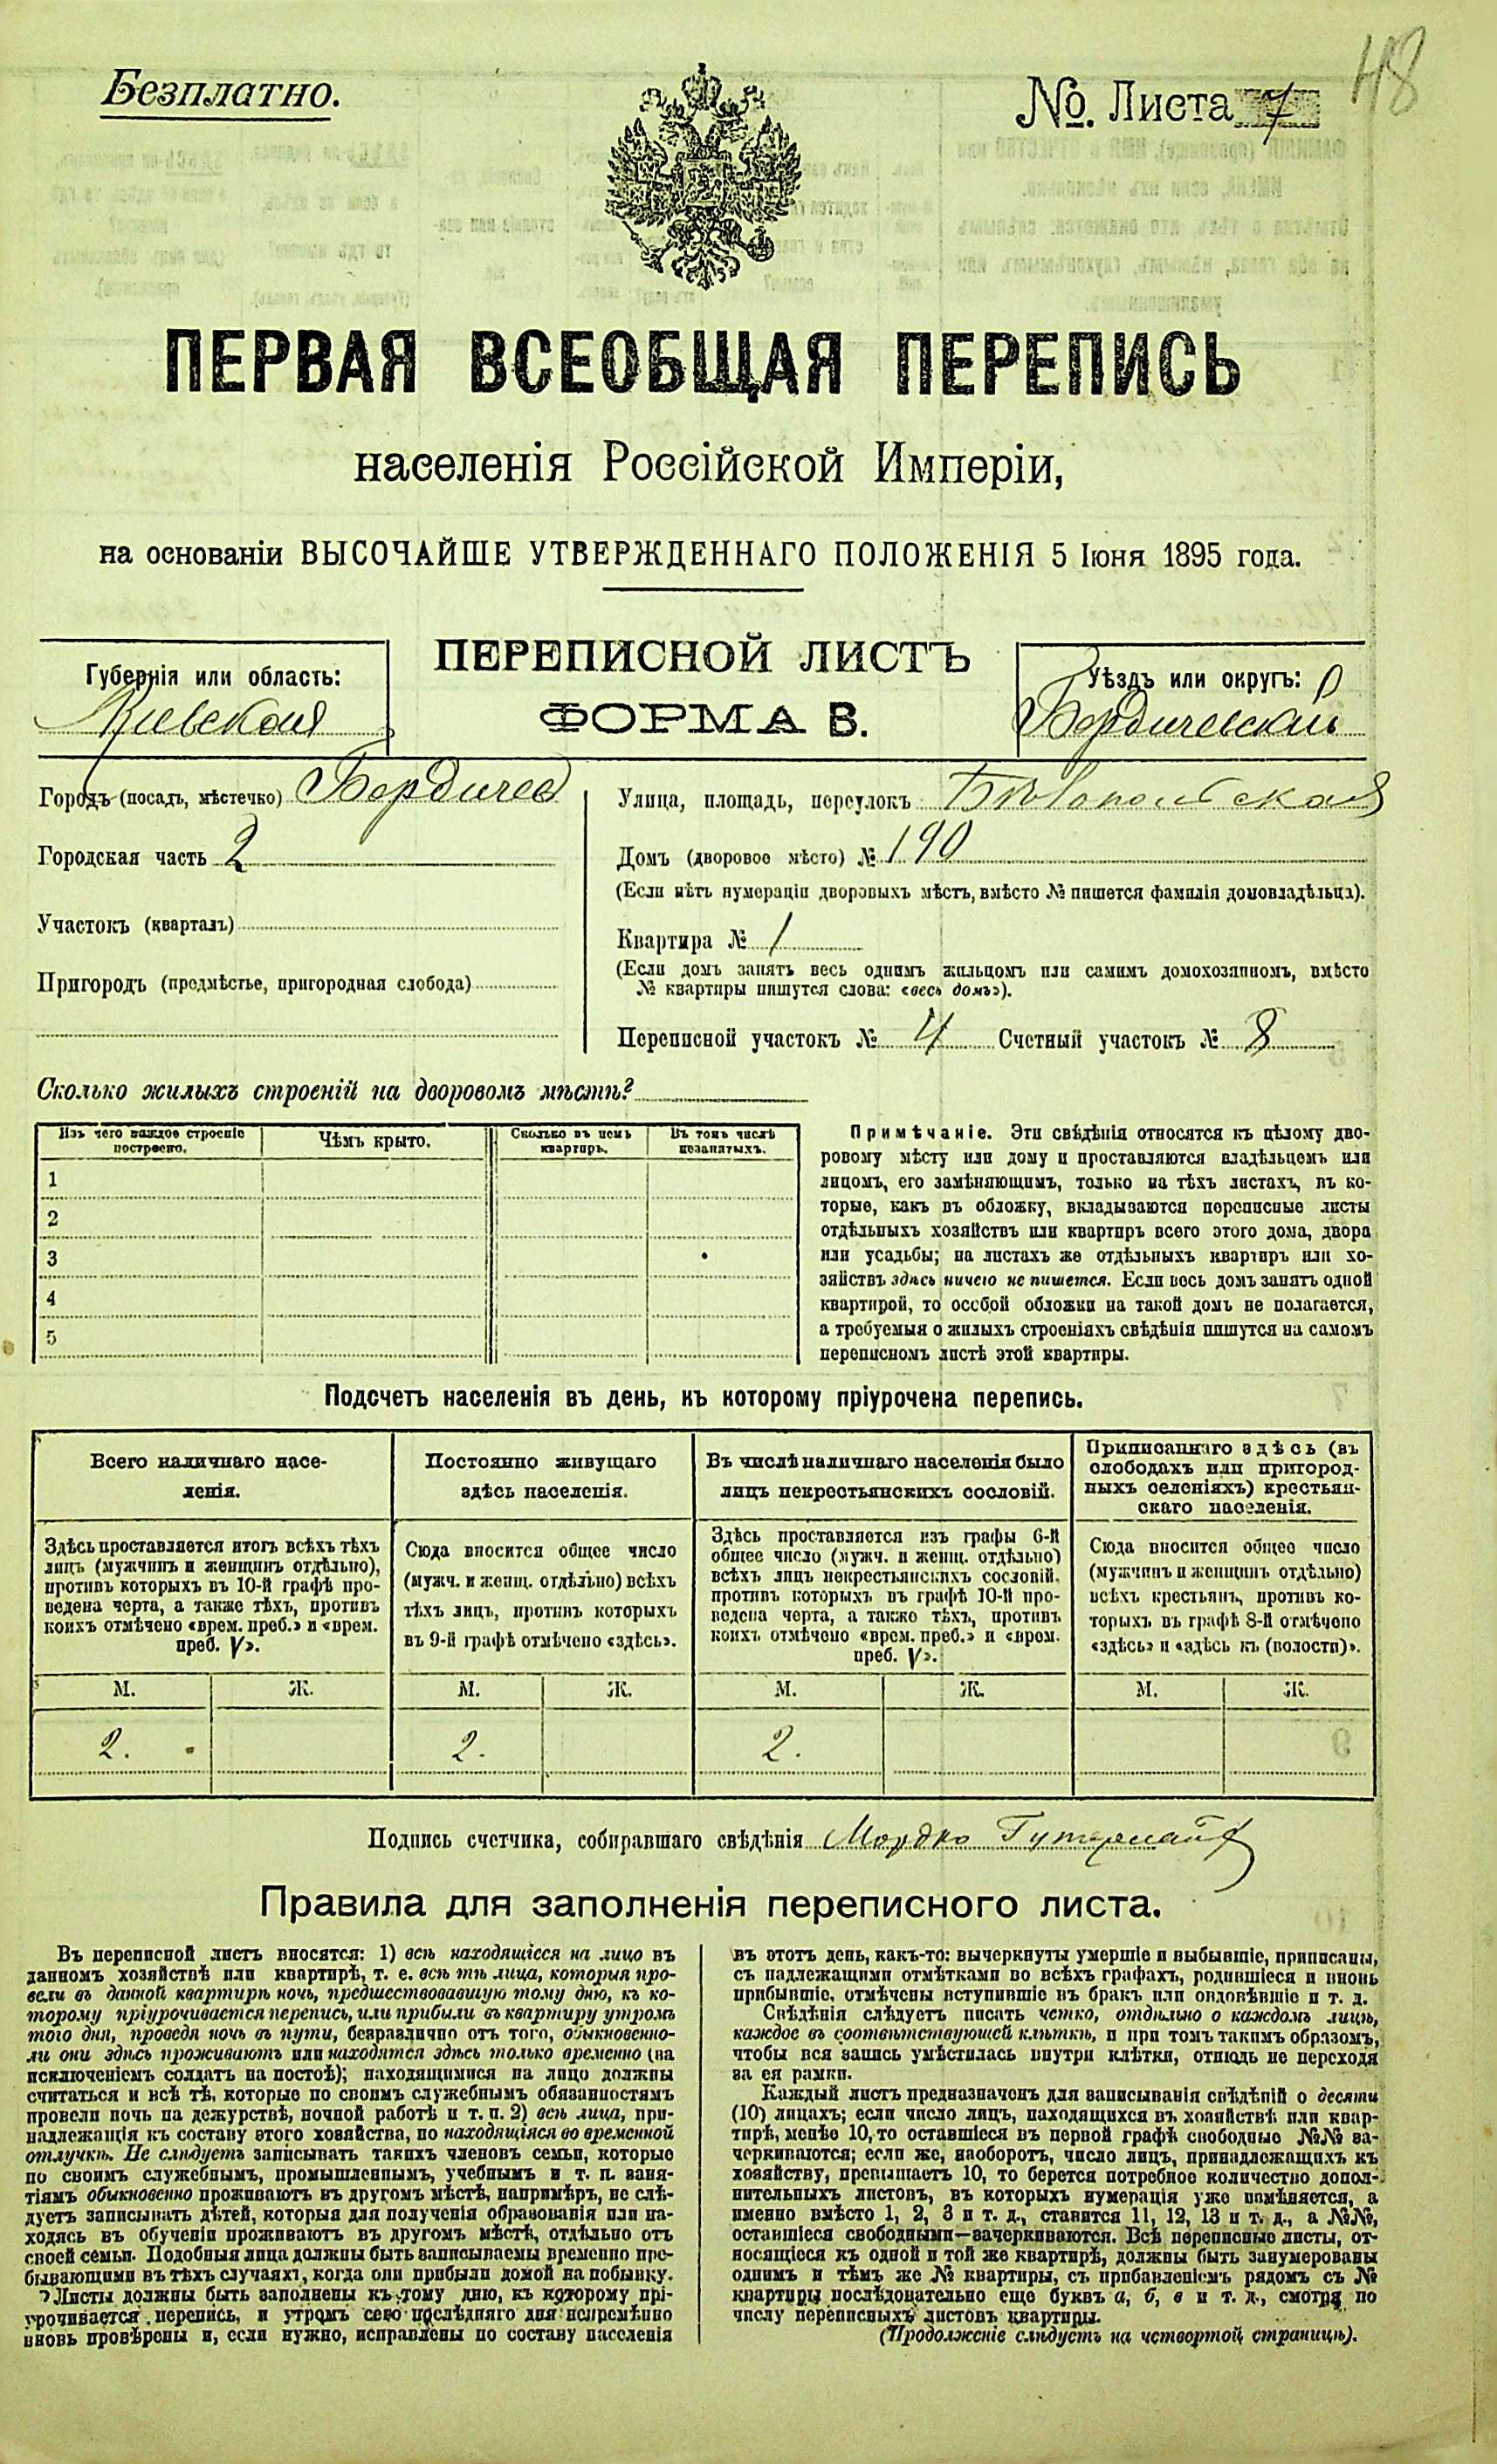 48
Безплатно.
№. Листа 7
ПЕРВАЯ ВСЕОБЩАЯ ПЕРЕПИСЬ
населенія Россійской Имперіи,
на основаніи ВЫСОЧАЙШЕ УТВЕРЖДЕННАГО ПОЛОЖЕНІЯ 5 Іюня 1895 года.
ПЕРЕПИСНОЙ ЛИСТЪ
ФОРМА В.
Губернія или область:
Кіевская
Уѣздъ или округъ:
Бердичевскій
Городъ (посадъ, мѣстечко) Бердичев
Городская часть 2
Участокъ (кварталъ)
Пригородъ (предмѣстье, пригородная слобода)
Улица, площадь, переулокъ Бѣлопольская
Домъ (дворовое мѣсто) № 190
(Если нѣтъ нумераціи дворовыхъ мѣстъ, вмѣсто № пишется фамилія домовладѣльца).
Квартира № 1
(Если домъ занятъ весь однимъ жильцомъ или самимъ домохозяиномъ, вмѣсто
№ квартиры пишутся слова: «весь домъ»).
Переписной участокъ № 4 Счетный участокъ № 8
Сколько жилыхъ строеній на дворовомъ мѣстѣ?
Изъ чего каждое строеніе построено.
Чѣмъ крыто.
Сколько въ немъ квартиръ.
Въ томъ числѣ незанятыхъ.
1
2
3
4
5
Примѣчаніе. Эти свѣдѣнія относятся къ цѣлому дво-
ровому мѣсту или дому и проставляются владѣльцемъ или
лицомъ, его замѣняющимъ, только на тѣхъ листахъ, въ ко-
торые, какъ въ обложку, вкладываются переписные листы
отдѣльныхъ хозяйствъ или квартиръ всего этого дома, двора
или усадьбы; на листахъ же отдѣльныхъ квартиръ или хо-
зяйствъ здѣсь ничего не пишется. Если весь домъ занятъ одной
квартирой, то особой обложки на такой домъ не полагается,
а требуемыя о жилыхъ строеніяхъ свѣдѣнія пишутся на самомъ
переписномъ листѣ этой квартиры.
Подсчетъ населенія въ день, къ которому пріурочена перепись.
Всего наличнаго насе-
ленія.
Здѣсь проставляется итогъ всѣхъ тѣхъ
лицъ (мужчинъ и женщинъ отдѣльно),
противъ которыхъ въ 10-й графѣ про-
ведена черта, а также тѣхъ, противъ
коихъ отмѣчено «врем. преб.» и «врем.
преб. V».
Постоянно живущаго
здѣсь населенія.
Сюда вносится общее число
(мужч. и женщ. отдѣльно) всѣхъ
тѣхъ лицъ, противъ которыхъ
въ 9-й графѣ отмѣчено «здѣсь».
Въ числѣ наличнаго населенія было
лицъ некрестьянскихъ сословій.
Здѣсь проставляется изъ графы 6-й
общее число (мужч. и женщ. отдѣльно)
всѣхъ лицъ некрестьянскихъ сословій,
противъ которыхъ въ графѣ 10-й про-
ведена черта, а также тѣхъ, противъ
коихъ отмѣчено «врем. преб.» и «врем.
преб. V».
Приписаннаго здѣсь (въ
слободахъ или пригород-
ныхъ селеніяхъ) крестьян-
скаго населенія.
Сюда вносится общее число
(мужчинъ и женщинъ отдѣльно)
всѣхъ крестьянъ, противъ ко-
торыхъ въ графѣ 8-й отмѣчено
«здѣсь» и «здѣсь къ (волости)».
М. Ж. М. Ж. М. Ж. М. Ж.
2. 2. 2.
Подпись счетчика, собиравшаго свѣдѣнія Мордко
Правила для заполненія переписного листа.
Въ переписной листъ вносятся: 1) всѣ находящіеся на лицо въ
данномъ хозяйствѣ или квартирѣ, т. е. всѣ тѣ лица, которыя про-
вели въ данной квартирѣ ночь, предшествовавшую тому дню, къ ко-
торому пріурочивается перепись, или прибыли въ квартиру утромъ
того дня, проведя ночь въ пути, безразлично отъ того, обыкновенно-
ли они здѣсь проживаютъ или находятся здѣсь только временно (за
исключеніемъ солдатъ на постоѣ); находящимися на лицо должны
считаться и всѣ тѣ, которые по своимъ служебнымъ обязанностямъ
провели ночь на дежурствѣ, ночной работѣ и т. п. 2) всѣ лица, при-
надлежащія къ составу этого хозяйства, но находящіяся во временной
отлучкѣ. Не слѣдуетъ записывать такихъ членовъ семьи, которые
по своимъ служебнымъ, промышленнымъ, учебнымъ и т. п. заня-
тіямъ обыкновенно проживаютъ въ другомъ мѣстѣ, напримѣръ, не слѣ-
дуетъ записывать дѣтей, которыя для полученія образованія или на-
ходясь въ обученіи проживаютъ въ другомъ мѣстѣ, отдѣльно отъ
своей семьи. Подобныя лица должны быть записываемы временно пре-
бывающими въ тѣхъ случаяхъ, когда они прибыли домой на побывку.
Листы должны быть заполнены къ тому дню, къ которому прі-
урочивается перепись, и утромъ сего послѣдняго дня непремѣнно
вновь провѣрены и, если нужно, исправлены по составу населенія
въ этотъ день, какъ-то: вычеркнуты умершіе и выбывшіе, приписаны,
съ надлежащими отмѣтками во всѣхъ графахъ, родившіеся и вновь
прибывшіе, отмѣчены вступившіе въ бракъ или овдовѣвшіе и т. д.
Свѣдѣнія слѣдуетъ писать четко, отдѣльно о каждомъ лицѣ,
каждое въ соотвѣтствующей клѣткѣ, и при томъ такимъ образомъ,
чтобы вся запись умѣстилась внутри клѣтки, отнюдь не переходя
за ея рамки.
Каждый листъ предназначенъ для записыванія свѣдѣній о десяти
(10) лицахъ; если число лицъ, находящихся въ хозяйствѣ или квар-
тирѣ, менѣе 10, то оставшіеся въ первой графѣ свободные №№ за-
черкиваются; если же, наоборотъ, число лицъ, принадлежащихъ къ
хозяйству, превышаетъ 10, то берется потребное количество допол-
нительныхъ листовъ, въ которыхъ нумерація уже измѣняется, а
именно вмѣсто 1, 2, 3 и т. д., ставится 11, 12, 13 и т. д., а №№,
оставшіеся свободными—зачеркиваются. Всѣ переписные листы, от-
носящіеся къ одной и той же квартирѣ, должны быть занумерованы
однимъ и тѣмъ же № квартиры, съ прибавленіемъ рядомъ съ №
квартиры послѣдовательно еще буквъ а, б, в и т. д., смотря по
числу переписныхъ листовъ квартиры.
(Продолженіе слѣдуетъ на четвертой страницѣ).